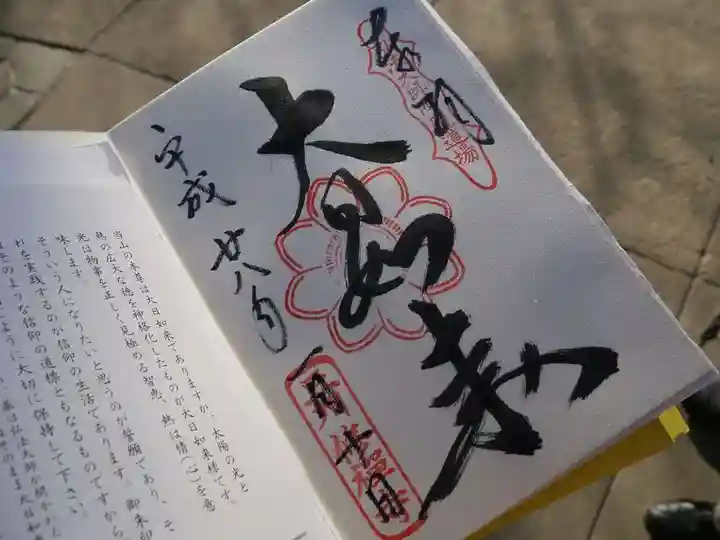 奉拝
道場
大日如来
平成廿八年
一月十日
当山の本尊は大日如来でありますが、太陽の光と
熱の広大な徳を神格化したものが大日如来様です。
光は物事を正しく見極める智恵、熱は情(心)を意
味します。
そういう人になりたいと思うのが誓願であり、そ
れを実践するのが信仰の生活であります。御朱印
はそのような信仰の道標ともなるものですから
ように大切に保持して下さい。